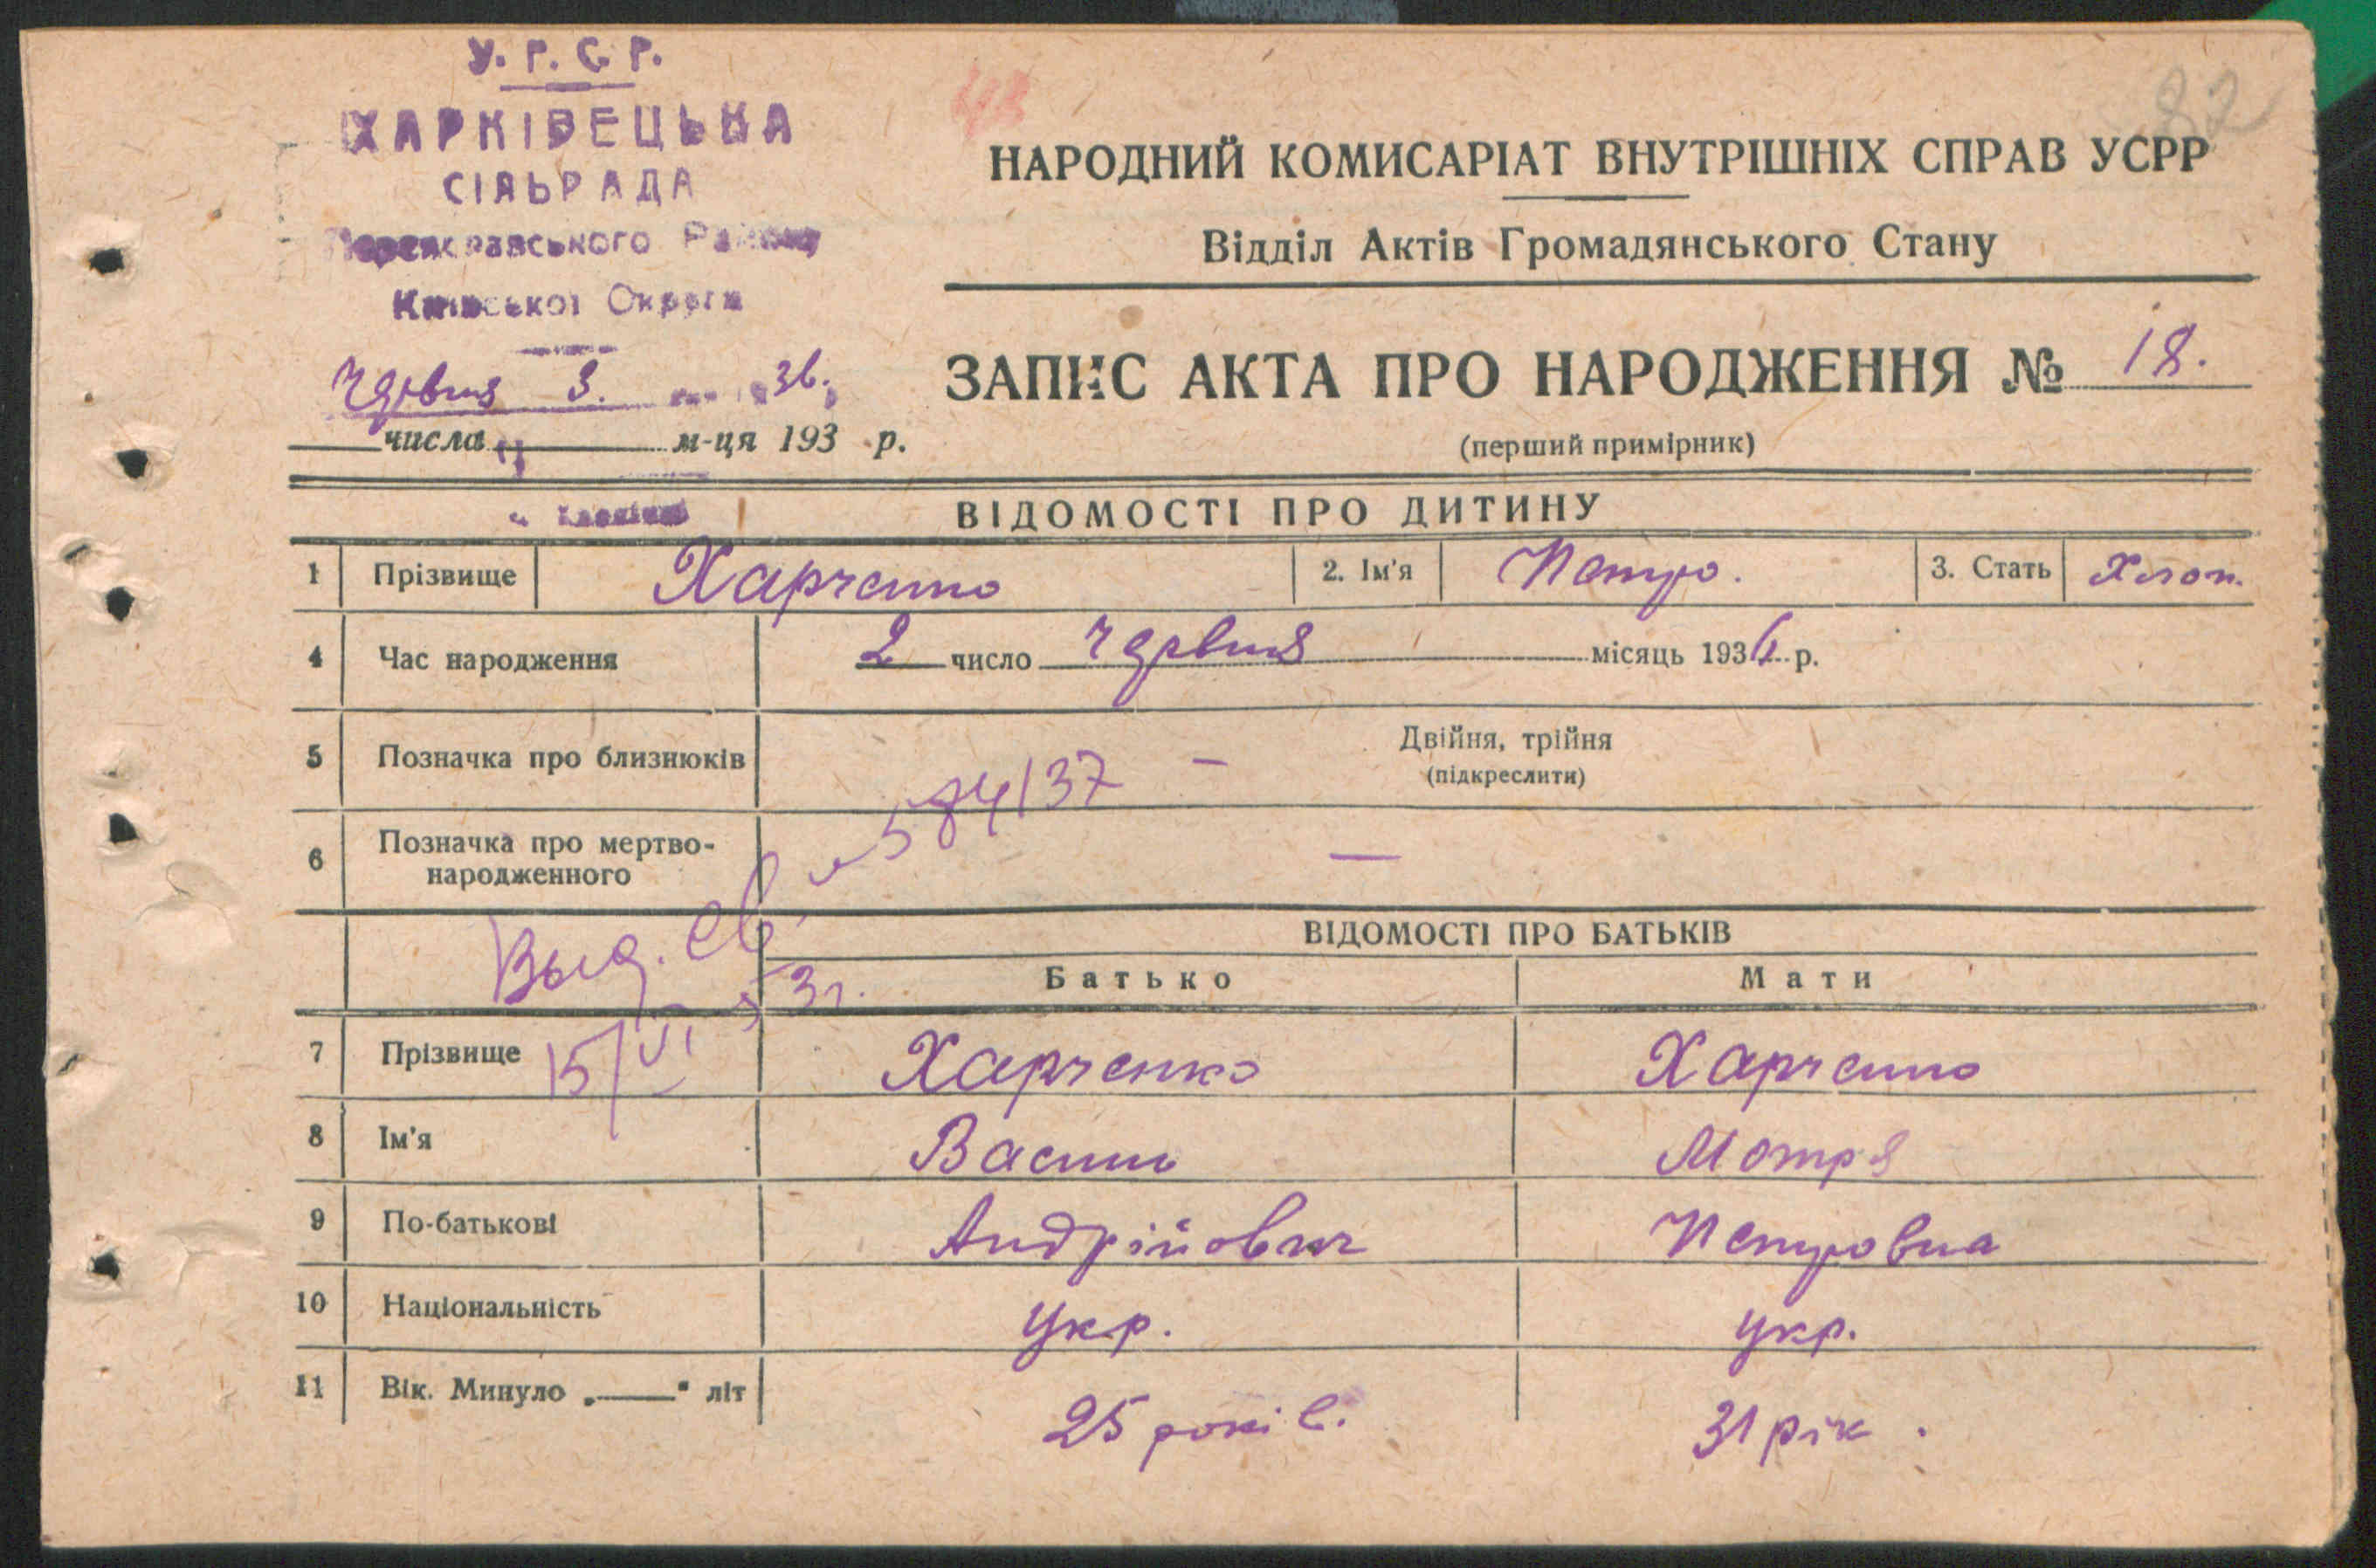 У. Р. С. Р.
ХАРКІВЕЦЬКА
СІЛЬРАДА
Переяславського Району
Київської Округи
Червня 3. 36.
числа м-ця 193 р.
82
НАРОДНИЙ КОМИСАРІАТ ВНУТРІШНІХ СПРАВ УСРР
Відділ Актів Громадянського Стану
ЗАПИС АКТА ПРО НАРОДЖЕННЯ № 18.
(перший примірник)
ВІДОМОСТІ ПРО ДИТИНУ
1 Прізвище Харченко 2. Ім'я Петро. 3. Стать Хлоп.
4 Час народження 2 число Червня місяць 1936 р.
5 Позначка про близнюків — Двійня, трійня
(підкреслити)
6 Позначка про мертво-
народженного —
Выд. св. № 584/37
15/VI 53г.
ВІДОМОСТІ ПРО БАТЬКІВ
Батько Мати
7 Прізвище Харченко Харченко
8 Ім'я Василь Мотря
9 По-батькові Андрійович Петровна
10 Національність Укр. Укр.
11 Вік. Минуло „——" літ 25 років. 31 рік.